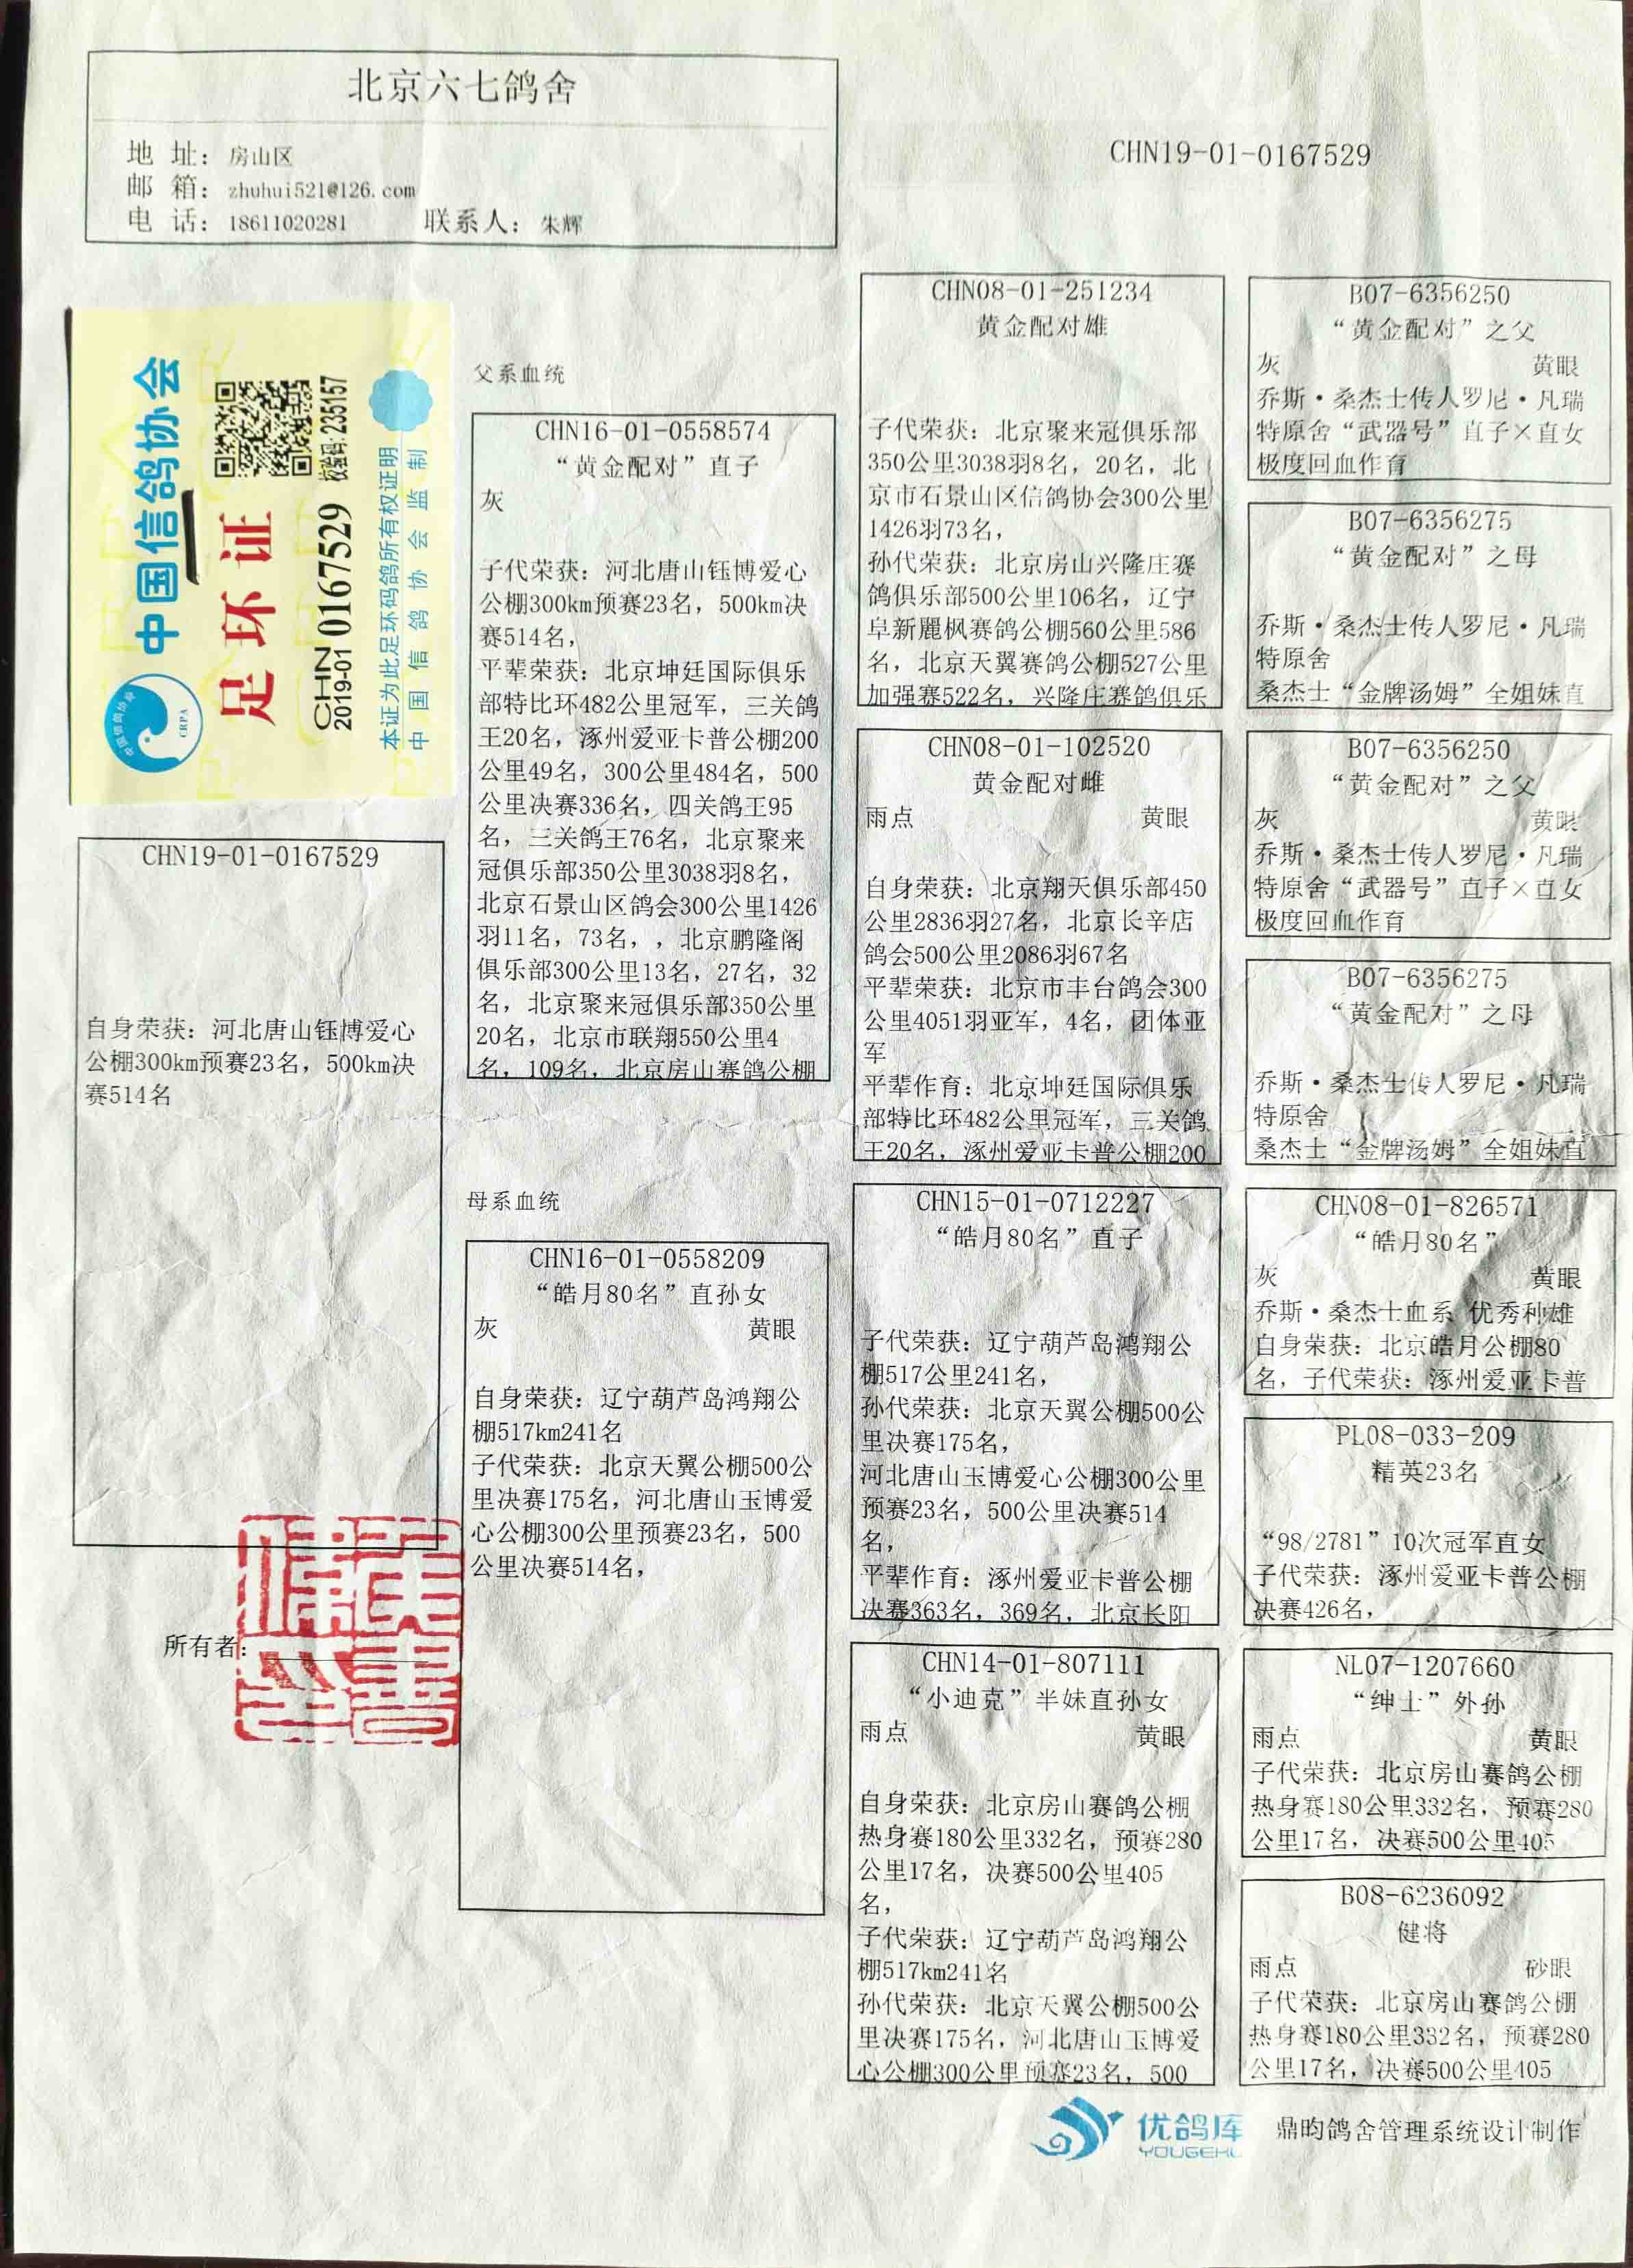 北京六七鸽舍
地 址：房山区
邮 箱：zhuhui521@126.com
电 话：18611020281 联系人：朱辉
CHN19-01-0167529
中国信鸽协会
足环证
CHN
2019-01 0167529 校验码:235157
本证为此足环码鸽所有权证明
中国信鸽协会监制
中国信鸽协会
CRPA
CHN19-01-0167529
自身荣获：河北唐山钰博爱心
公棚300km预赛23名，500km决
赛514名
所有者：
父系血统
CHN16-01-0558574
“黄金配对”直子
灰
子代荣获：河北唐山钰博爱心
公棚300km预赛23名，500km决
赛514名，
平辈荣获：北京坤廷国际俱乐
部特比环482公里冠军，三关鸽
王20名，涿州爱亚卡普公棚200
公里49名，300公里484名，500
公里决赛336名，四关鸽王95
名，三关鸽王76名，北京聚来
冠俱乐部350公里3038羽8名，
北京石景山区鸽会300公里1426
羽11名，73名，，北京鹏隆阁
俱乐部300公里13名，27名，32
名，北京聚来冠俱乐部350公里
20名，北京市联翔550公里4
名，109名，北京房山赛鸽公棚
母系血统
CHN16-01-0558209
“皓月80名”直孙女
灰 黄眼
自身荣获：辽宁葫芦岛鸿翔公
棚517km241名
子代荣获：北京天翼公棚500公
里决赛175名，河北唐山玉博爱
心公棚300公里预赛23名，500
公里决赛514名，
CHN08-01-251234
黄金配对雄
子代荣获：北京聚来冠俱乐部
350公里3038羽8名，20名，北
京市石景山区信鸽协会300公里
1426羽73名，
孙代荣获：北京房山兴隆庄赛
鸽俱乐部500公里106名，辽宁
阜新麗枫赛鸽公棚560公里586
名，北京天翼赛鸽公棚527公里
加强赛522名，兴隆庄赛鸽俱乐
CHN08-01-102520
黄金配对雌
雨点 黄眼
自身荣获：北京翔天俱乐部450
公里2836羽27名，北京长辛店
鸽会500公里2086羽67名
平辈荣获：北京市丰台鸽会300
公里4051羽亚军，4名，团体亚
军
平辈作育：北京坤廷国际俱乐
部特比环482公里冠军，三关鸽
王20名，涿州爱亚卡普公棚200
CHN15-01-0712227
“皓月80名”直子
子代荣获：辽宁葫芦岛鸿翔公
棚517公里241名，
孙代荣获：北京天翼公棚500公
里决赛175名，
河北唐山玉博爱心公棚300公里
预赛23名，500公里决赛514
名，
平辈作育：涿州爱亚卡普公棚
决赛363名，369名，北京长阳
CHN14-01-807111
“小迪克”半妹直孙女
雨点 黄眼
自身荣获：北京房山赛鸽公棚
热身赛180公里332名，预赛280
公里17名，决赛500公里405
名，
子代荣获：辽宁葫芦岛鸿翔公
棚517km241名
孙代荣获：北京天翼公棚500公
里决赛175名，河北唐山玉博爱
心公棚300公里预赛23名，500
B07-6356250
“黄金配对”之父
灰 黄眼
乔斯·桑杰士传人罗尼·凡瑞
特原舍“武器号”直子×直女
极度回血作育
B07-6356275
“黄金配对”之母
乔斯·桑杰士传人罗尼·凡瑞
特原舍
桑杰士“金牌汤姆”全姐妹直
B07-6356250
“黄金配对”之父
灰 黄眼
乔斯·桑杰士传人罗尼·凡瑞
特原舍“武器号”直子×直女
极度回血作育
B07-6356275
“黄金配对”之母
乔斯·桑杰士传人罗尼·凡瑞
特原舍
桑杰士“金牌汤姆”全姐妹直
CHN08-01-826571
“皓月80名”
灰 黄眼
乔斯·桑杰士血系 优秀种雄
自身荣获：北京皓月公棚80
名，子代荣获：涿州爱亚卡普
PL08-033-209
精英23名
“98/2781”10次冠军直女
子代荣获：涿州爱亚卡普公棚
决赛426名，
NL07-1207660
“绅士”外孙
雨点 黄眼
子代荣获：北京房山赛鸽公棚
热身赛180公里332名，预赛280
公里17名，决赛500公里405
B08-6236092
健将
雨点 砂眼
子代荣获：北京房山赛鸽公棚
热身赛180公里332名，预赛280
公里17名，决赛500公里405
优鸽库
YOUGEKU
鼎昀鸽舍管理系统设计制作